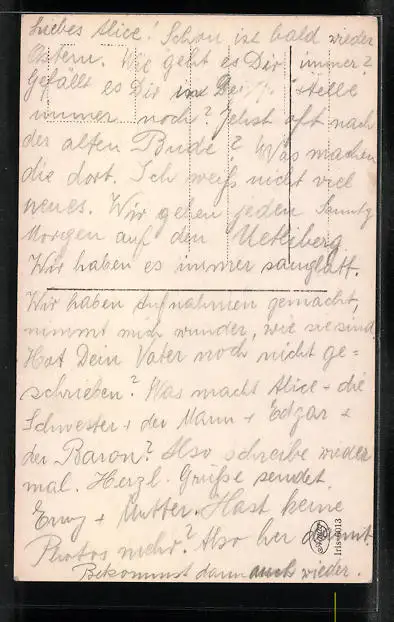 Liebes Alice! Schon ist bald wieder
Ostern. Wie geht es Dir immer?
Gefällt es Dir in Dei Stelle
immer noch? Gehst oft nach
der alten Bude? Was machen
die dort. Ich weiß nicht viel
neues. Wir gehen jeden Sonntg
Morgen auf den Uetliberg.
Wir haben es immer sauglatt.
Wir haben Aufnahmen gemacht,
nimmt mich wunder, wie sie sind.
Hat Dein Vater noch nicht ge=
schrieben? Was macht Alice + die
Schwester + der Mann + Edgar +
der Baron? Also schreibe wieder
mal. Herzl. Grüße sendet
Emy + Mutter. Hast keine
Photos mehr? Also her damit.
Bekommst dann auch wieder.
Iris 6013